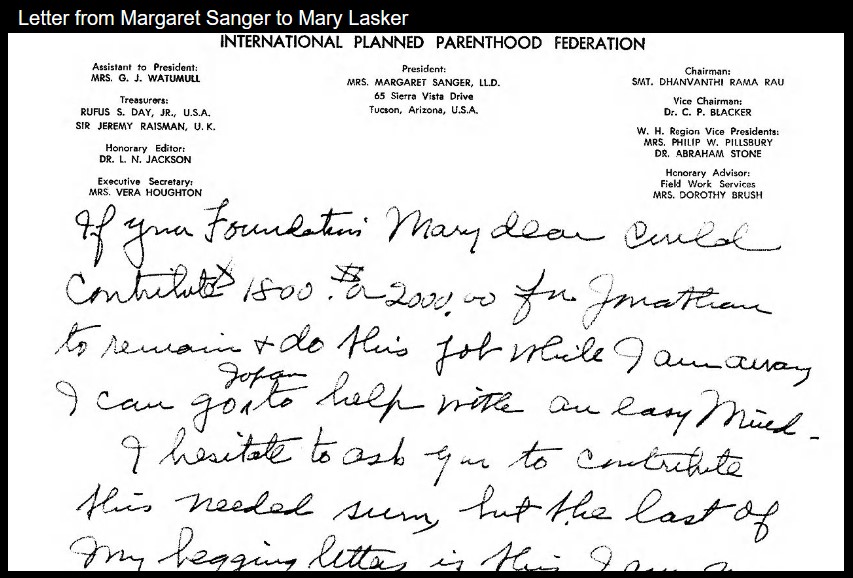 Letter from Margaret Sanger to Mary Lasker
INTERNATIONAL PLANNED PARENTHOOD FEDERATION
Assistant to President:
MRS. G. J. WATUMULL
Treasurers:
RUFUS S. DAY, JR., U.S.A.
SIR JEREMY RAISMAN, U. K.
Honorary Editor:
DR. L. N. JACKSON
Executive Secretary:
MRS. VERA HOUGHTON
President:
MRS. MARGARET SANGER, LL.D.
65 Sierra Vista Drive
Tucson, Arizona, U.S.A.
Chairman:
SMT. DHANVANTHI RAMA RAU
Vice Chairman:
Dr. C. P. BLACKER
W. H. Region Vice Presidents:
MRS. PHILIP W. PILLSBURY
DR. ABRAHAM STONE
Honorary Advisor:
Field Work Services
MRS. DOROTHY BRUSH
If your Foundation Mary dear could
Contribute 1800. or $2000.00 for Jonathan
to remain & do this job while I am away
Japan
I can go to help with an easy Mind -
I hesitate to ask you to contribute
this needed sum, but the last of
My begging letters is this I am